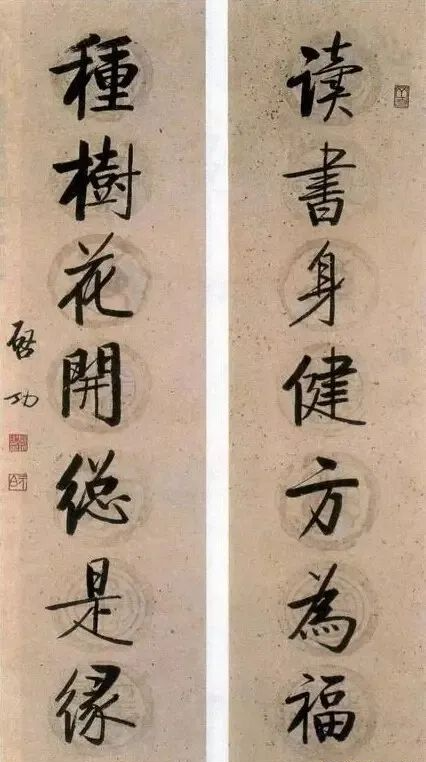 读书身健方為福
種樹花開總是緣
啓功